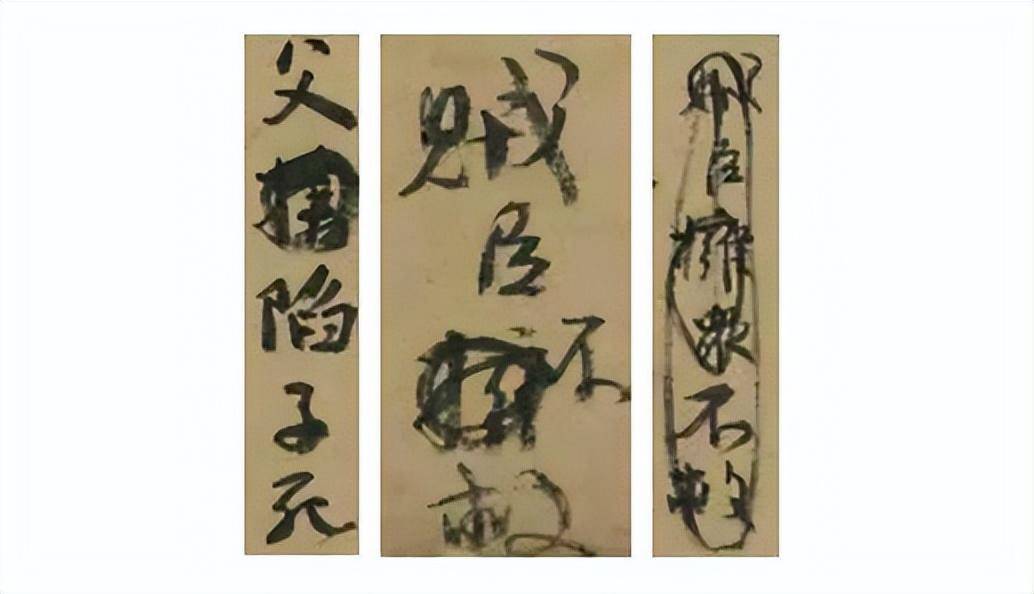 賊臣擁衆不救
賊臣不救
父陷子死